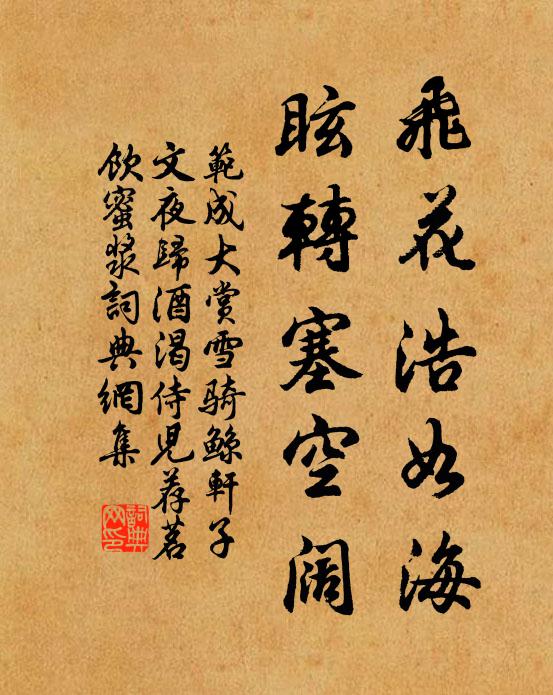 飛花浩如海
眩轉塞空闊
範成大賞雪騎鯨軒子
文夜歸酒渴侍兒荐茗
飲蜜漿詞典網集
詞典
网印